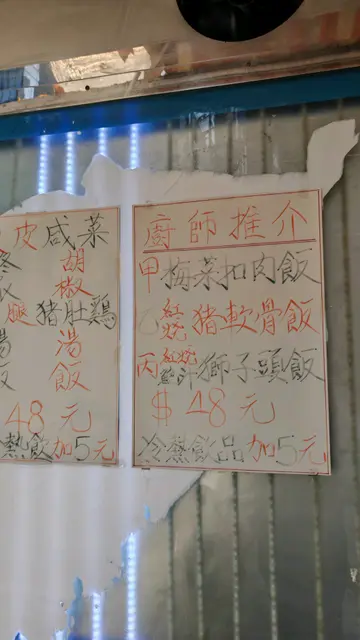 廚師推介
甲 梅菜扣肉飯
乙 紅燒 猪軟骨飯
丙 紅燒 獅子頭飯
$48元
冷熱飲品加5元
皮 咸菜
胡椒
腿 猪肚鷄
湯
飯
48元
熱飲加5元